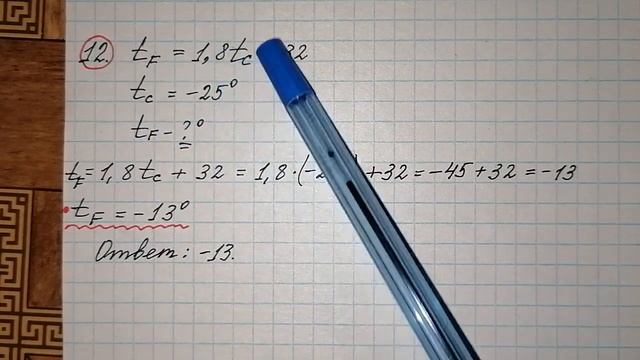 12. t_F = 1,8t_C 32
t_C = -25°
t_F - ?°
t_F = 1,8t_C + 32 = 1,8·(-2 ) + 32 = -45 + 32 = -13
t_F = -13°
Ответ: -13.